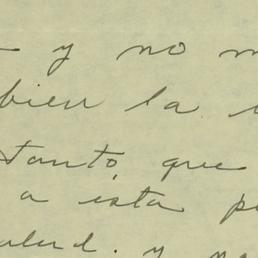 y no m
bien la
tanto, que
a esta p
alud. y no